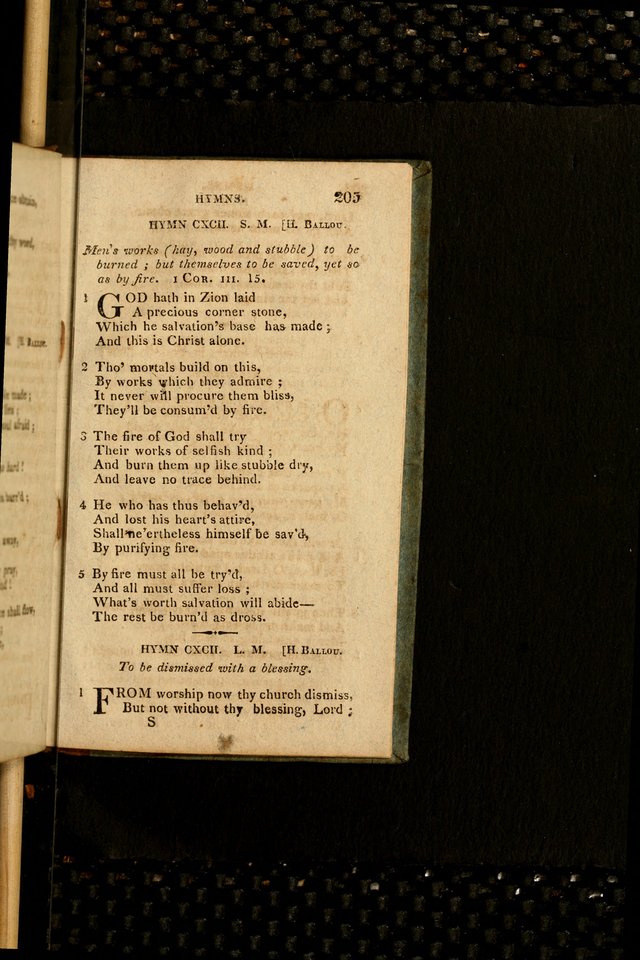 HYMNS. 205
HYMN CXCII. S. M. [H. BALLOU.
Men's works (hay, wood and stubble) to be
burned ; but themselves to be saved, yet so
as by fire. 1 COR. III. 15.
1 GOD hath in Zion laid
A precious corner stone,
Which he salvation's base has made ;
And this is Christ alone.
2 Tho' mortals build on this,
By works which they admire ;
It never will procure them bliss,
They'll be consum'd by fire.
3 The fire of God shall try
Their works of selfish kind ;
And burn them up like stubble dry,
And leave no trace behind.
4 He who has thus behav'd,
And lost his heart's attire,
Shall ne'ertheless himself be sav'd,
By purifying fire.
5 By fire must all be try'd,
And all must suffer loss ;
What's worth salvation will abide—
The rest be burn'd as dross.
HYMN CXCII. L. M. [H. BALLOU.
To be dismissed with a blessing.
1 FROM worship now thy church dismiss,
But not without thy blessing, Lord ;
S